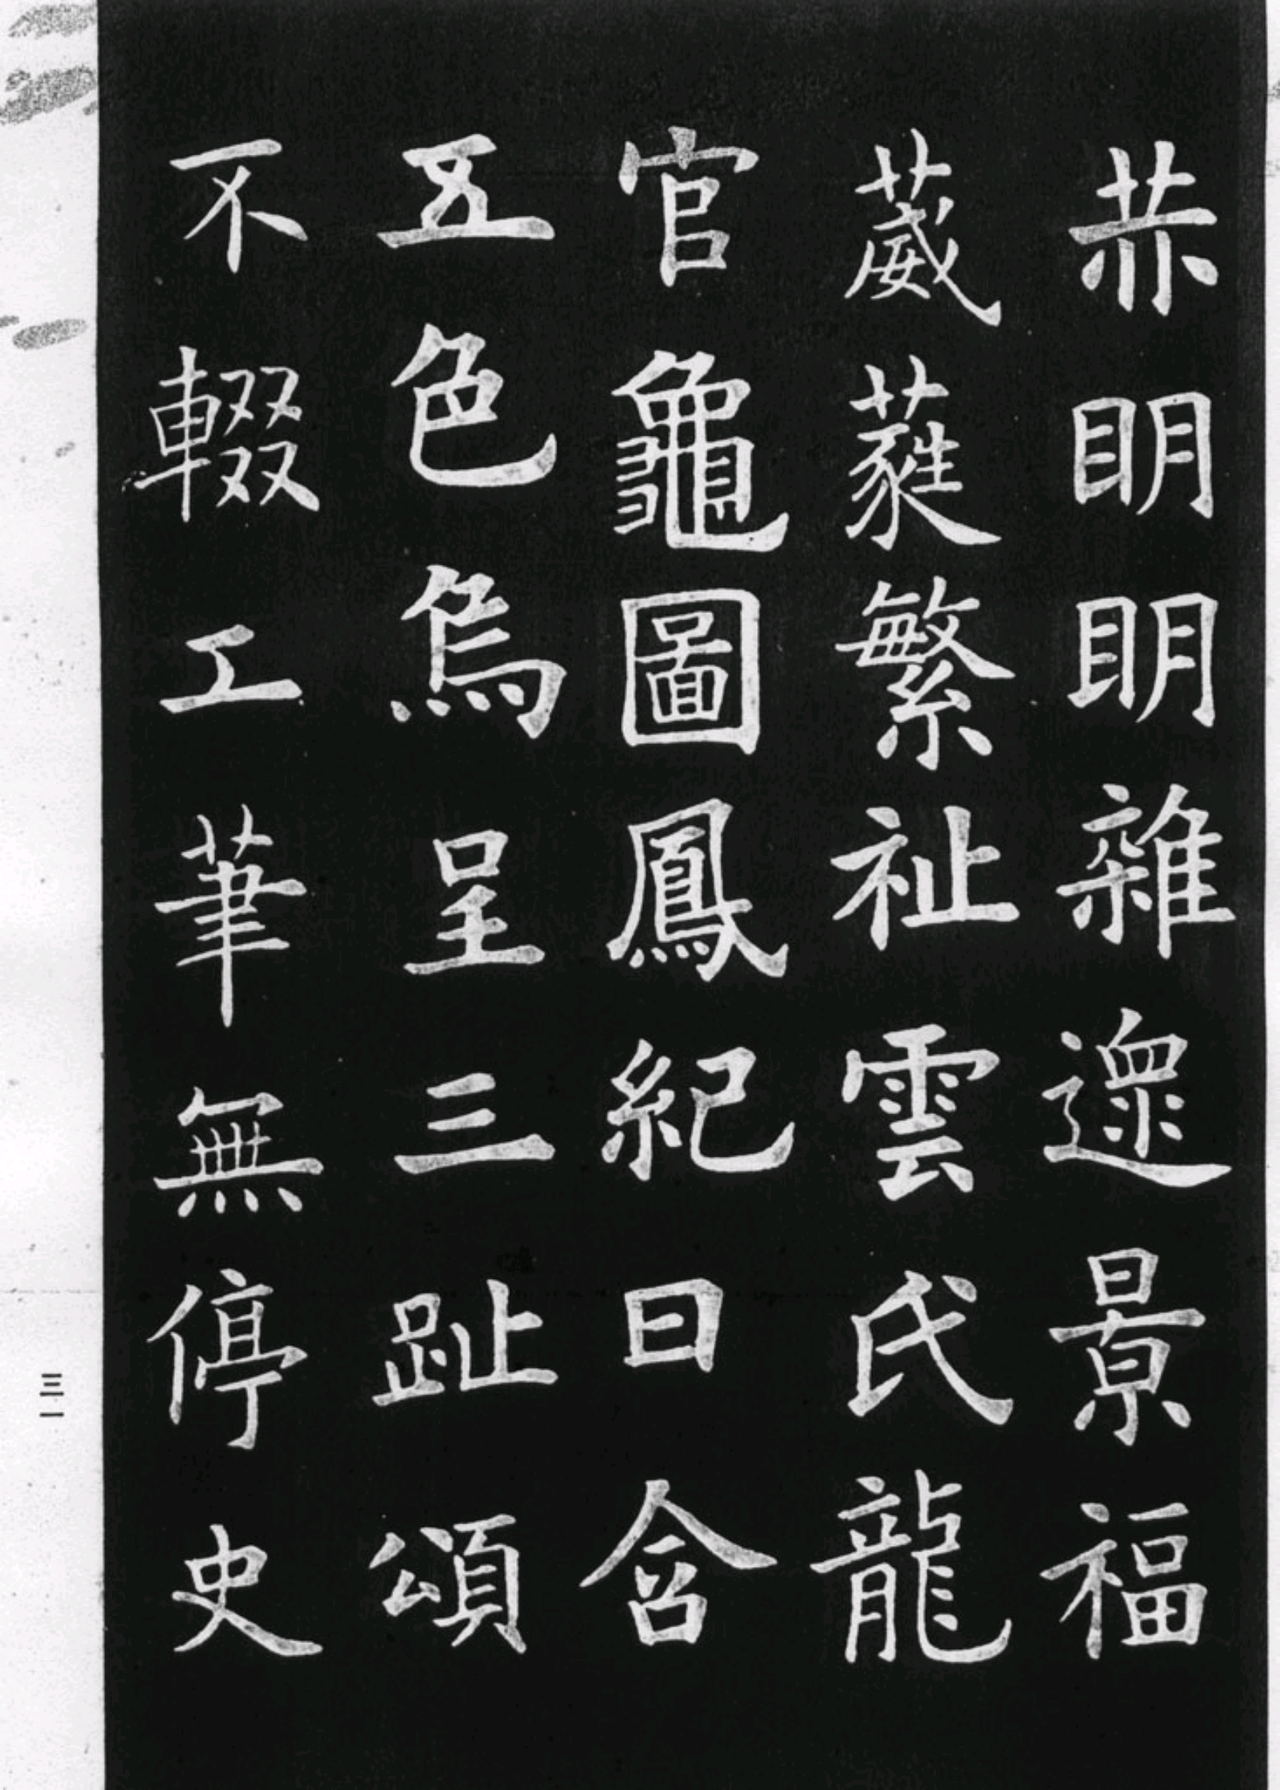 恭明明雜遝景福
葳蕤繁祉雲氏龍
官龜圖鳳紀日含
五色烏呈三趾頌
不輟工筆無停史
三一